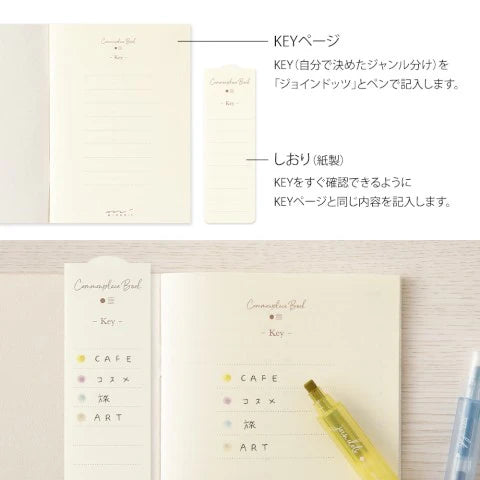 Commonplace Book
- Key -
MIDORI
Commonplace Book
- Key -
KEYページ
KEY（自分で決めたジャンル分け）を
「ジョインドッツ」とペンで記入します。
しおり（紙製）
KEYをすぐ確認できるように
KEYページと同じ内容を記入します。
Commonplace Book
- Key -
CAFE
コスメ
旅
ART
Commonplace Book
- Key -
CAFE
コスメ
旅
ART